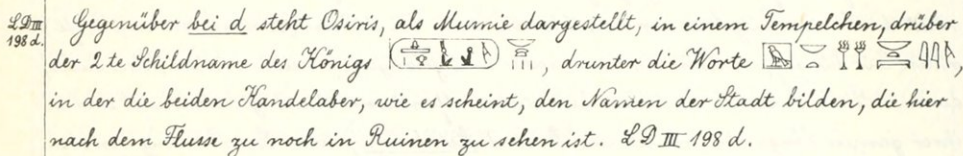 LD III Gegenüber bei d steht Osiris, als Mumie dargestellt, in einem Tempelchen, drüber
198 d. der 2te Schildname des Königs , drunter die Worte ,
in der die beiden Kandelaber, wie es scheint, den Namen der Stadt bilden, die hier
nach dem Flusse zu noch in Ruinen zu sehen ist. LD III 198 d.